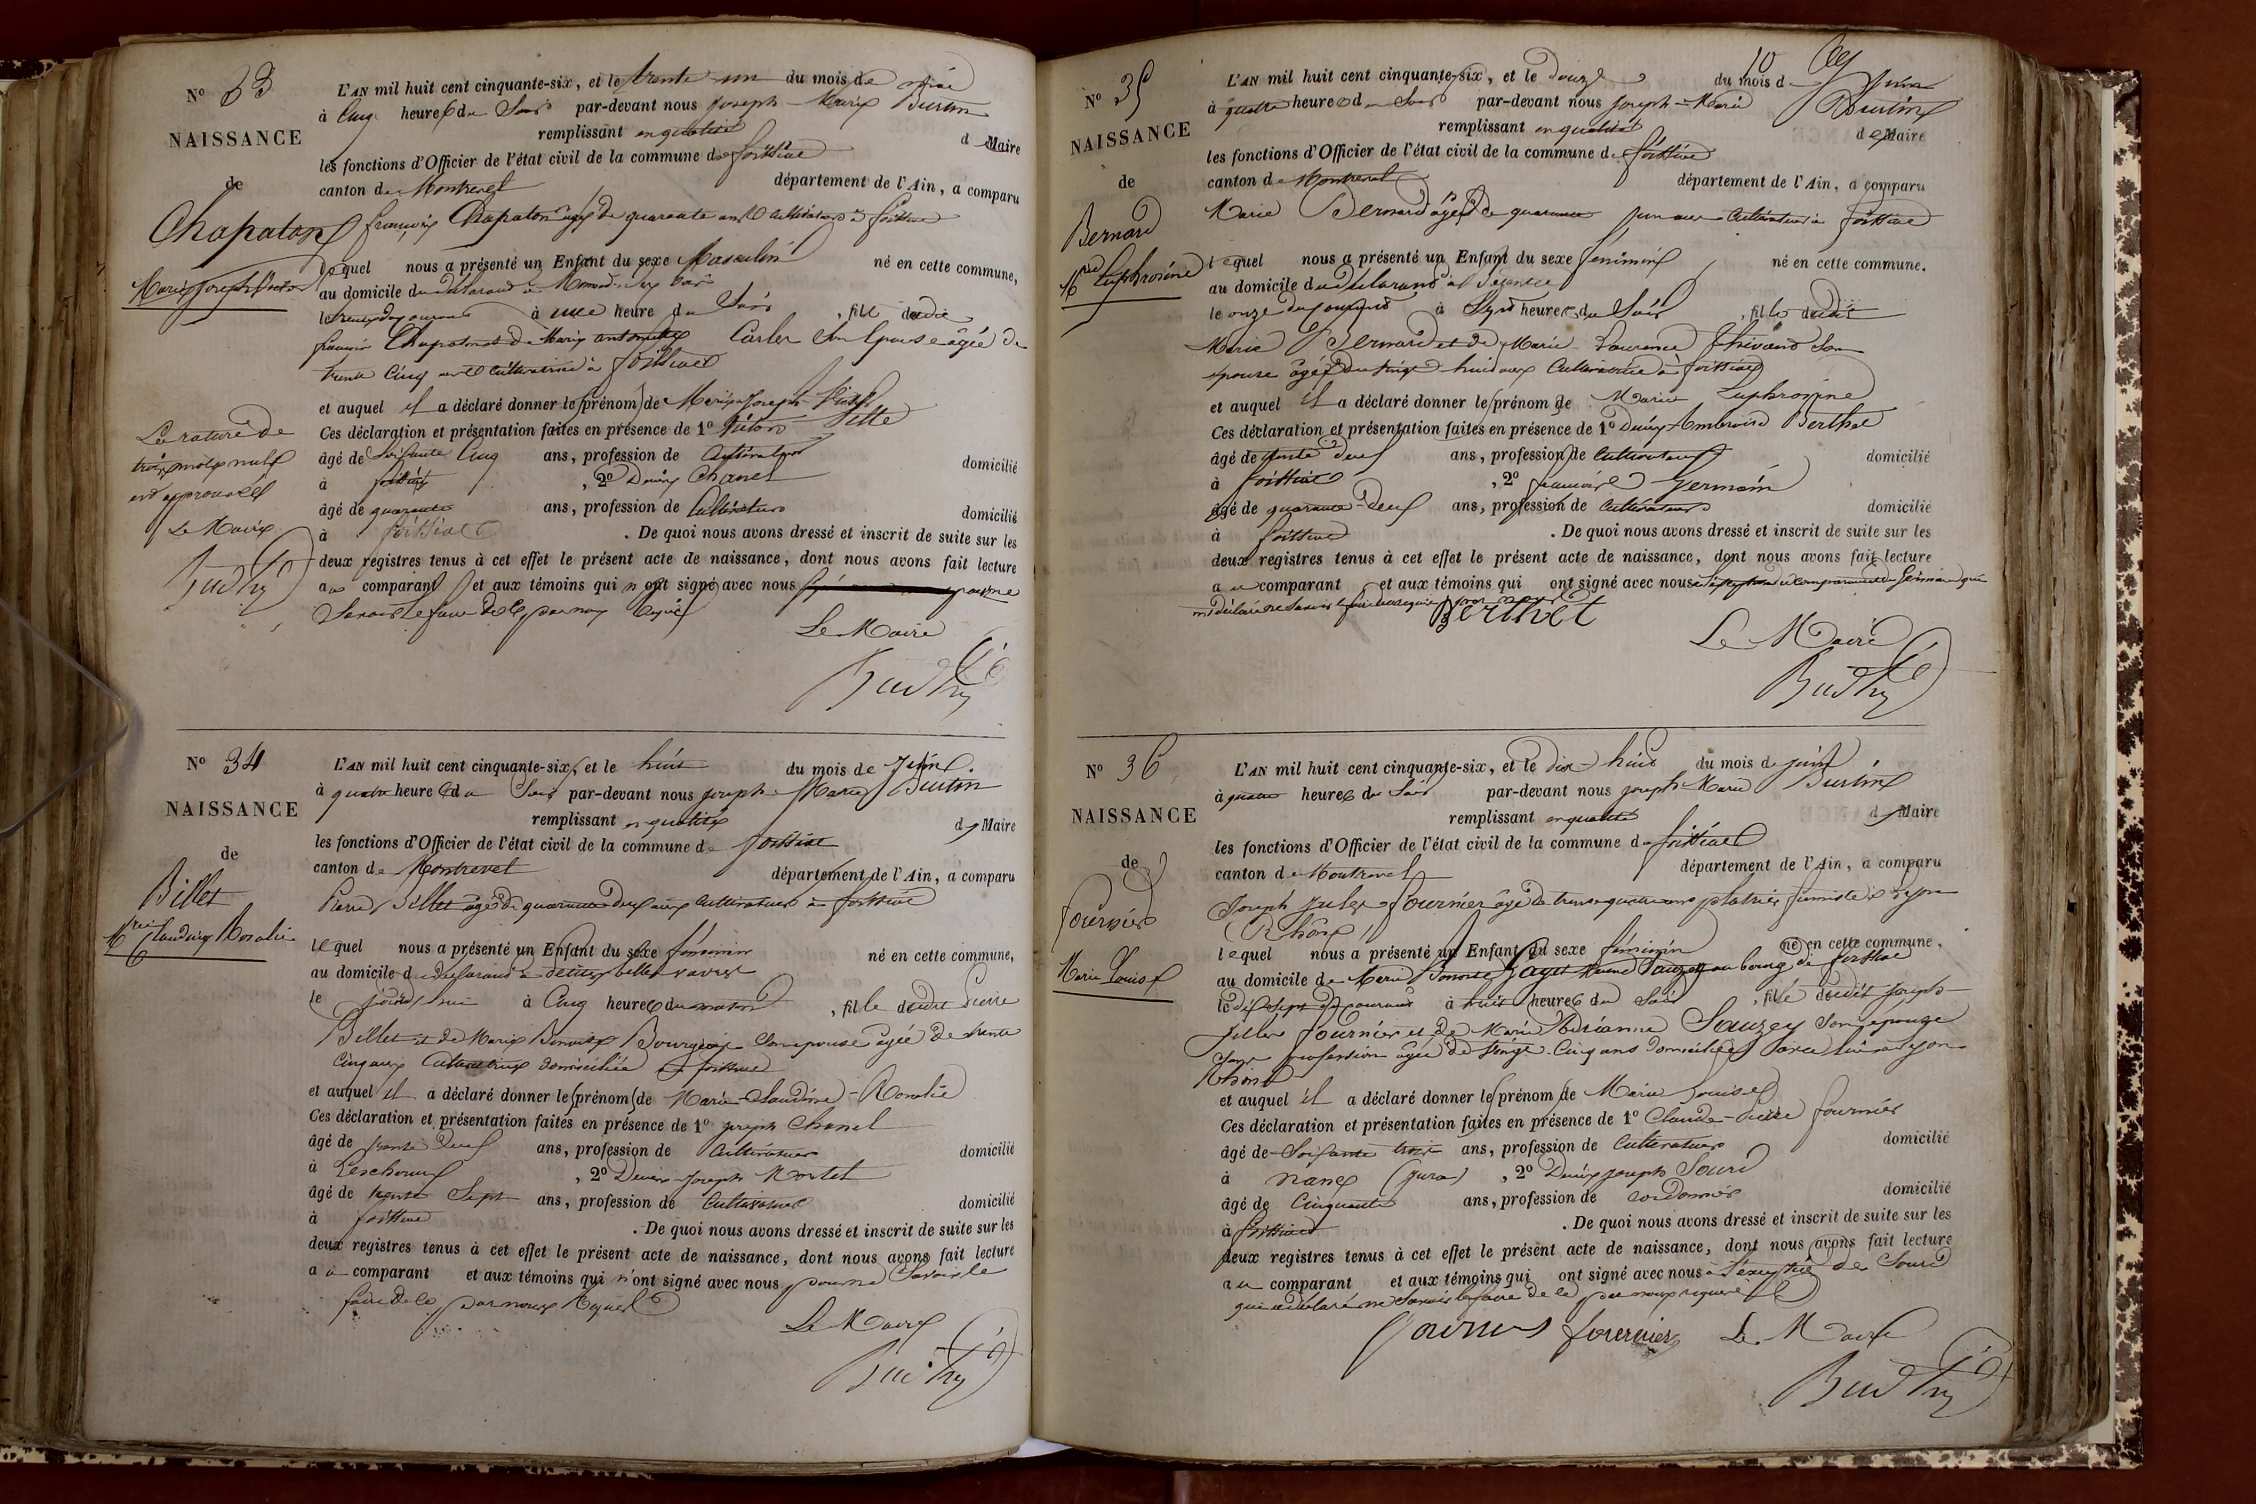 N° 33
NAISSANCE
de
Chapaton
Marie Joseph
L'AN mil huit cent cinquante-six, et le trente un du mois de mai
à Cinq heures du Soir par-devant nous Joseph-Marie Burtin
remplissant en qualité de Maire
les fonctions d'Officier de l'état civil de la commune de foissiat
canton de Montrevel département de l'Ain, a comparu
françois Chapaton âgé de quarante ans Cultivateur à foissiat
lequel nous a présenté un Enfant du sexe Masculin né en cette commune,
au domicile du déclarant à
le à une heure du Soir, fils dudit
françois Chapaton et de Marie antoinette Carler Son Epouse âgée de
trente Cinq ans Cultivatrice à foissiat
et auquel il a déclaré donner le prénom de Marie Joseph
Ces déclaration et présentation faites en présence de 1°
âgé de Soixante Cinq ans, profession de Cultivateur domicilié
à foissiat, 2° Denis Chanel
âgé de quarante ans, profession de Cultivateur domicilié
à foissiat. De quoi nous avons dressé et inscrit de suite sur les
deux registres tenus à cet effet le présent acte de naissance, dont nous avons fait lecture
au comparant et aux témoins qui n'ont signé avec nous pour ne
Savoir le faire de ce par nous requis
La rature de
trois mots nuls
est approuvée
Le Maire
Burtin
Le Maire
Burtin
N° 34
NAISSANCE
de
Billet
Mrie Claudine Rosalie
L'AN mil huit cent cinquante-six, et le huit du mois de juin
à quatre heures du Soir par-devant nous joseph Marie Burtin
remplissant en qualité de Maire
les fonctions d'Officier de l'état civil de la commune de foissiat
canton de Montrevel département de l'Ain, a comparu
Pierre Billet âgé de quarante deux ans Cultivateur à foissiat
lequel nous a présenté un Enfant du sexe féminin né en cette commune,
au domicile du déclarant à
le jourd'hui à Cinq heures du matin, fille dudit Pierre
Billet et de Marie Benoite Bourgeois Son épouse âgée de trente
Cinq ans Cultivatrice domiciliée à foissiat
et auquel il a déclaré donner le prénom de Marie-Claudine-Rosalie
Ces déclaration et présentation faites en présence de 1° joseph Chanel
âgé de trente deux ans, profession de Cultivateur domicilié
à Leschoux, 2° Denis-Joseph Mortel
âgé de trente Sept ans, profession de Cultivateur domicilié
à foissiat. De quoi nous avons dressé et inscrit de suite sur les
deux registres tenus à cet effet le présent acte de naissance, dont nous avons fait lecture
au comparant et aux témoins qui n'ont signé avec nous pour ne Savoir le
faire de ce par nous Requis
Le Maire
Burtin
10
N° 35
NAISSANCE
de
Bernard
Mrie Euphrosine
L'AN mil huit cent cinquante-six, et le douze du mois de juin
à quatre heures du Soir par-devant nous joseph-Marie Bourtin
remplissant en qualité de Maire
les fonctions d'Officier de l'état civil de la commune de foissiat
canton de Montrevel département de l'Ain, a comparu
Marie Bernard âgé de quarante un ans Cultivateur à foissiat
lequel nous a présenté un Enfant du sexe féminin né en cette commune.
au domicile du déclarant à
le onze du courant à Sept heures du Soir, fille dudit
Marie Bernard et de Marie Laurence Thivand Son
épouse âgée de vingt-huit ans Cultivatrice à foissiat
et auquel il a déclaré donner le prénom de Marie Euphrosine
Ces déclaration et présentation faites en présence de 1° Denis Ambroise Berthet
âgé de trente deux ans, profession de Cultivateur domicilié
à foissiat, 2° françois Germain
âgé de quarante-deux ans, profession de Cultivateur domicilié
à foissiat. De quoi nous avons dressé et inscrit de suite sur les
deux registres tenus à cet effet le présent acte de naissance, dont nous avons fait lecture
au comparant et aux témoins qui ont signé avec nous à l'exception du comparant et du Germain qui
ont déclaré ne Savoir le faire de ce requis par nous
Berthet
Le Maire
Burtin
N° 36
NAISSANCE
de
fournier
Marie Louise
L'AN mil huit cent cinquante-six, et le dix-huit du mois de juin
à quatre heures du Soir par-devant nous joseph Marie Burtin
remplissant en qualité de Maire
les fonctions d'Officier de l'état civil de la commune de foissiat
canton de Montrevel département de l'Ain, a comparu
Joseph Jules fournier âgé de trente quatre ans plâtrier fumiste à Lyon
(Rhône)
lequel nous a présenté un Enfant du sexe féminin né en cette commune,
au domicile de Marie Benoite Gayet Veuve Sauzey au bourg de foissiat
le dix Sept du courant à huit heures du Soir, fille dudit joseph
jules fournier et de Marie Adrianne Sauzey Son épouse
Sans profession âgée de vingt-Cinq ans domiciliée avec lui à Lyon
Rhône
et auquel il a déclaré donner le prénom de Marie Louise
Ces déclaration et présentation faites en présence de 1° Claude-Pierre fournier
âgé de Soixante trois ans, profession de Cultivateur domicilié
à nance (jura), 2° Denis joseph Sourd
âgé de Cinquante ans, profession de Cordonnier domicilié
à foissiat. De quoi nous avons dressé et inscrit de suite sur les
deux registres tenus à cet effet le présent acte de naissance, dont nous avons fait lecture
au comparant et aux témoins qui ont signé avec nous à l'exception de Sourd
qui a déclaré ne Savoir le faire de ce par nous requis
fournier fournier Le Maire
Burtin